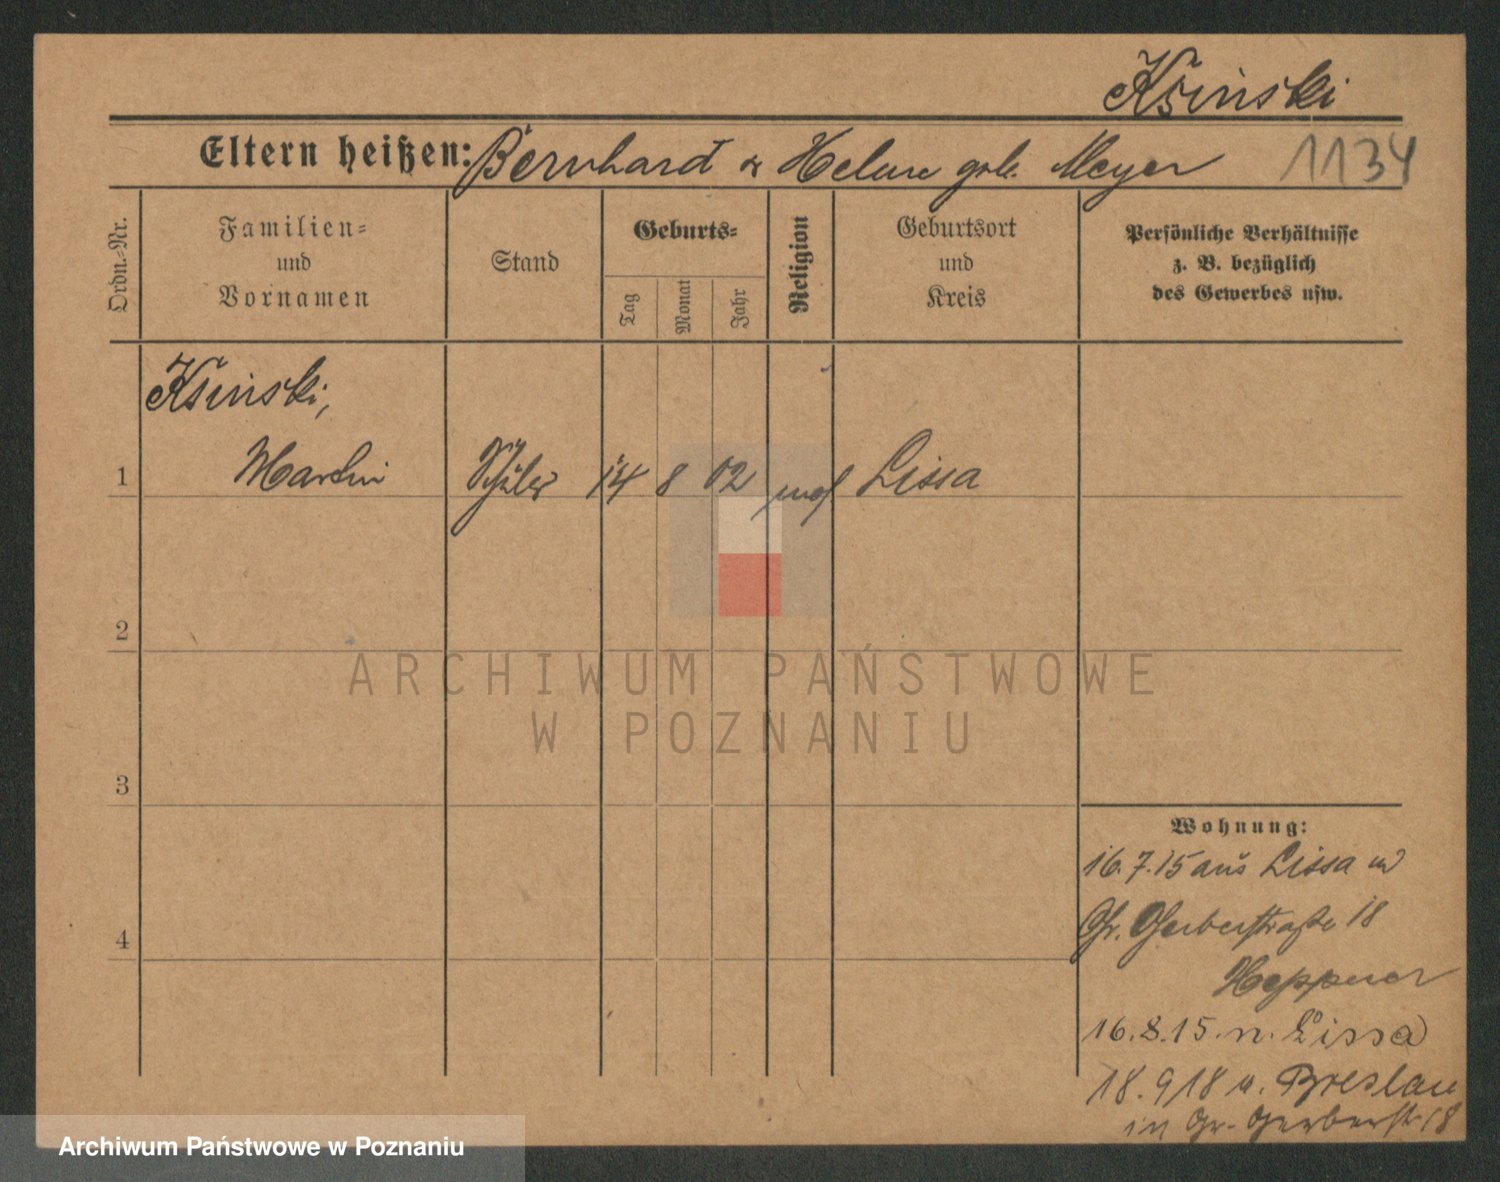 Ksinski
Eltern heißen: Bernhard & Helene geb. Meyer 1134
Ordn.-Nr.
Familien-
und
Vornamen
Stand
Geburts-
Tag
Monat
Jahr
Religion
Geburtsort
und
Kreis
Persönliche Verhältnisse
z. B. bezüglich
des Gewerbes usw.
Ksinski,
1 Martin Schüler 14 8 02 mos Lissa
2
3
4
Wohnung:
16.7.15 aus Lissa
Gr. Gerberstraße 18
Heppner
16.8.15. n. Lissa
18.9 18 v. Breslau
in Gr. Gerberstr 18
ARCHIWUM PAŃSTWOWE
W POZNANIU
Archiwum Państwowe w Poznaniu